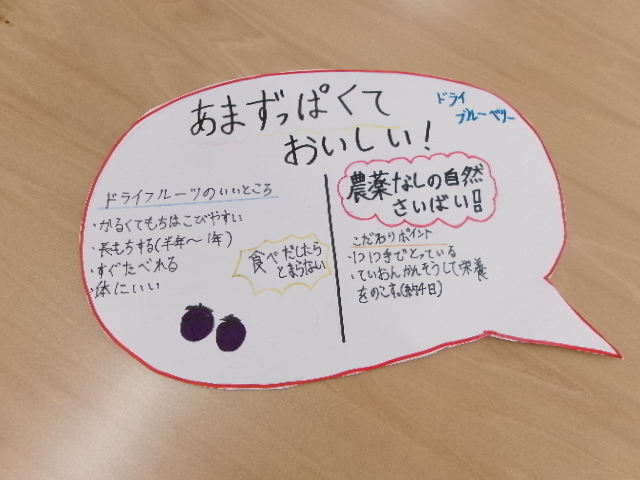 あまずっぱくて
おいしい!
ドライ
ブルーベリー
ドライフルーツのいいところ
・かるくてもちはこびやすい
・長もちする(半年〜1年)
・すぐたべれる
・体にいい
食べだしたら
とまらない
農薬なしの自然
さいばい!!
こだわりポイント
・1つ1つ手でとっている
・ていおんかんそうして栄養
をのこす。(約4日)